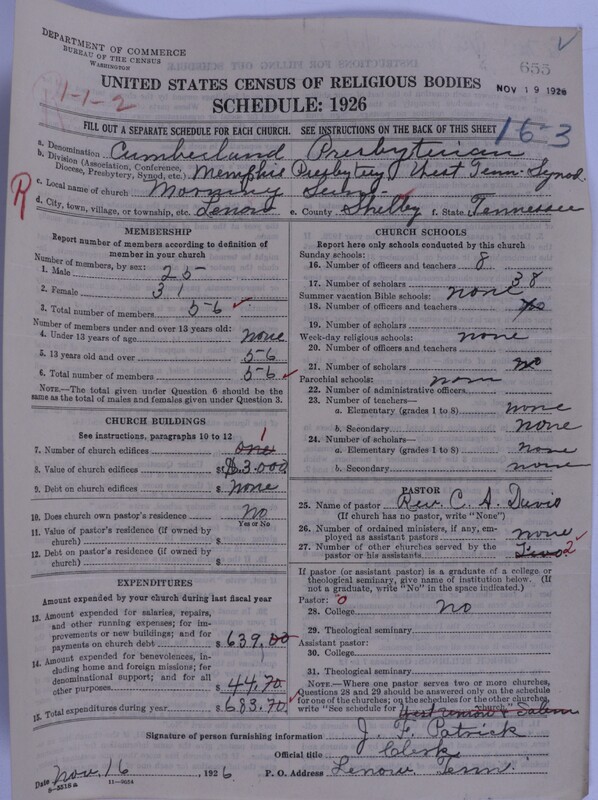 DEPARTMENT OF COMMERCE
BUREAU OF THE CENSUS
WASHINGTON
655
NOV 19 1926
UNITED STATES CENSUS OF RELIGIOUS BODIES
SCHEDULE: 1926
1-1-2
FILL OUT A SEPARATE SCHEDULE FOR EACH CHURCH. SEE INSTRUCTIONS ON THE BACK OF THIS SHEET
15-3
a. Denomination Cumberland Presbyterian
b. Division (Association, Conference, Diocese, Presbytery, Synod, etc.) Memphis Presbytery West Tenn. Synod.
R
c. Local name of church Morning Sun
d. City, town, village, or township, etc. Lenow e. County Shelby f. State Tennessee
MEMBERSHIP
Report number of members according to definition of
member in your church
Number of members, by sex:
1. Male 25
2. Female 31
3. Total number of members 56
Number of members under and over 13 years old:
4. Under 13 years of age none
5. 13 years old and over 56
6. Total number of members 56
NOTE.—The total given under Question 6 should be
same as the total of males and females given under Question 3.
CHURCH BUILDINGS
See instructions, paragraphs 10 to 12
1
7. Number of church edifices one
8. Value of church edifices $ 3.000
9. Debt on church edifices $ None
10. Does church own pastor's residence? No
Yes or No
11. Value of pastor's residence (if owned by
church) $
12. Debt on pastor's residence (if owned by
church) $
EXPENDITURES
Amount expended by your church during last fiscal year
13. Amount expended for salaries, repairs,
and other running expenses; for im-
provements or new buildings; and for
payments on church debt $ 639.00
14. Amount expended for benevolences, in-
cluding home and foreign missions; for
denominational support; and for all
other purposes $ 44.70
15. Total expenditures during year $ 683.70
CHURCH SCHOOLS
Report here only schools conducted by this church
Sunday schools:
16. Number of officers and teachers 8
17. Number of scholars 38
Summer vacation Bible schools: none
18. Number of officers and teachers
19. Number of scholars
Week-day religious schools: none
20. Number of officers and teachers
21. Number of scholars no
Parochial schools: none
22. Number of administrative officers
23. Number of teachers—
a. Elementary (grades 1 to 8) none
b. Secondary none
24. Number of scholars—
a. Elementary (grades 1 to 8) none
b. Secondary none
PASTOR
25. Name of pastor Rev. C. A. Davis
(If church has no pastor, write "None")
26. Number of ordained ministers, if any, em-
ployed as assistant pastors none
27. Number of other churches served by the
pastor or his assistants Two 2
If pastor (or assistant pastor) is a graduate of a college or
theological seminary, give name of institution below. (If
not a graduate, write "No" in the space indicated.)
Pastor: 0
28. College No
29. Theological seminary
Assistant pastor:
30. College
31. Theological seminary
NOTE.—Where one pastor serves two or more churches,
Questions 28 and 29 should be answered only on the schedule
for one of the churches; on the schedules for the other churches,
write "See schedule for Salem church."
Signature of person furnishing information J. F. Patrick
Official title Clerk
Date Nov. 16, 1926 P. O. Address Lenow Tenn.
8-3518a 11-9024